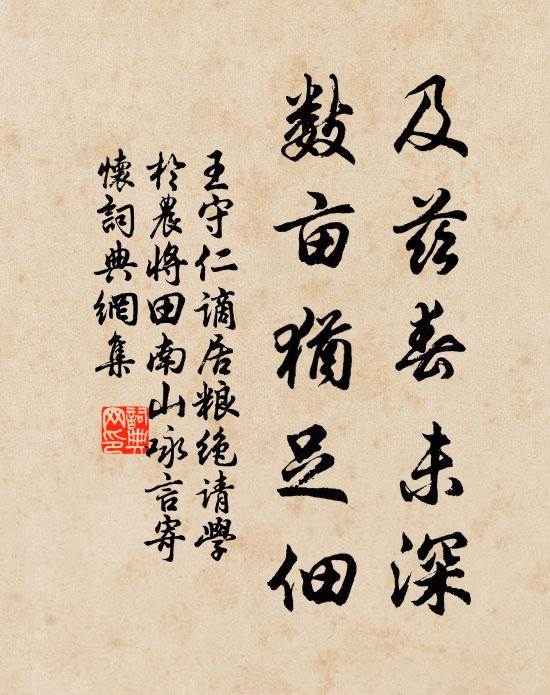 及兹春未深
数亩犹足佃
王守仁谪居粮绝请学
於農将田南山咏言寄
懷詞典網集
詞典
网印